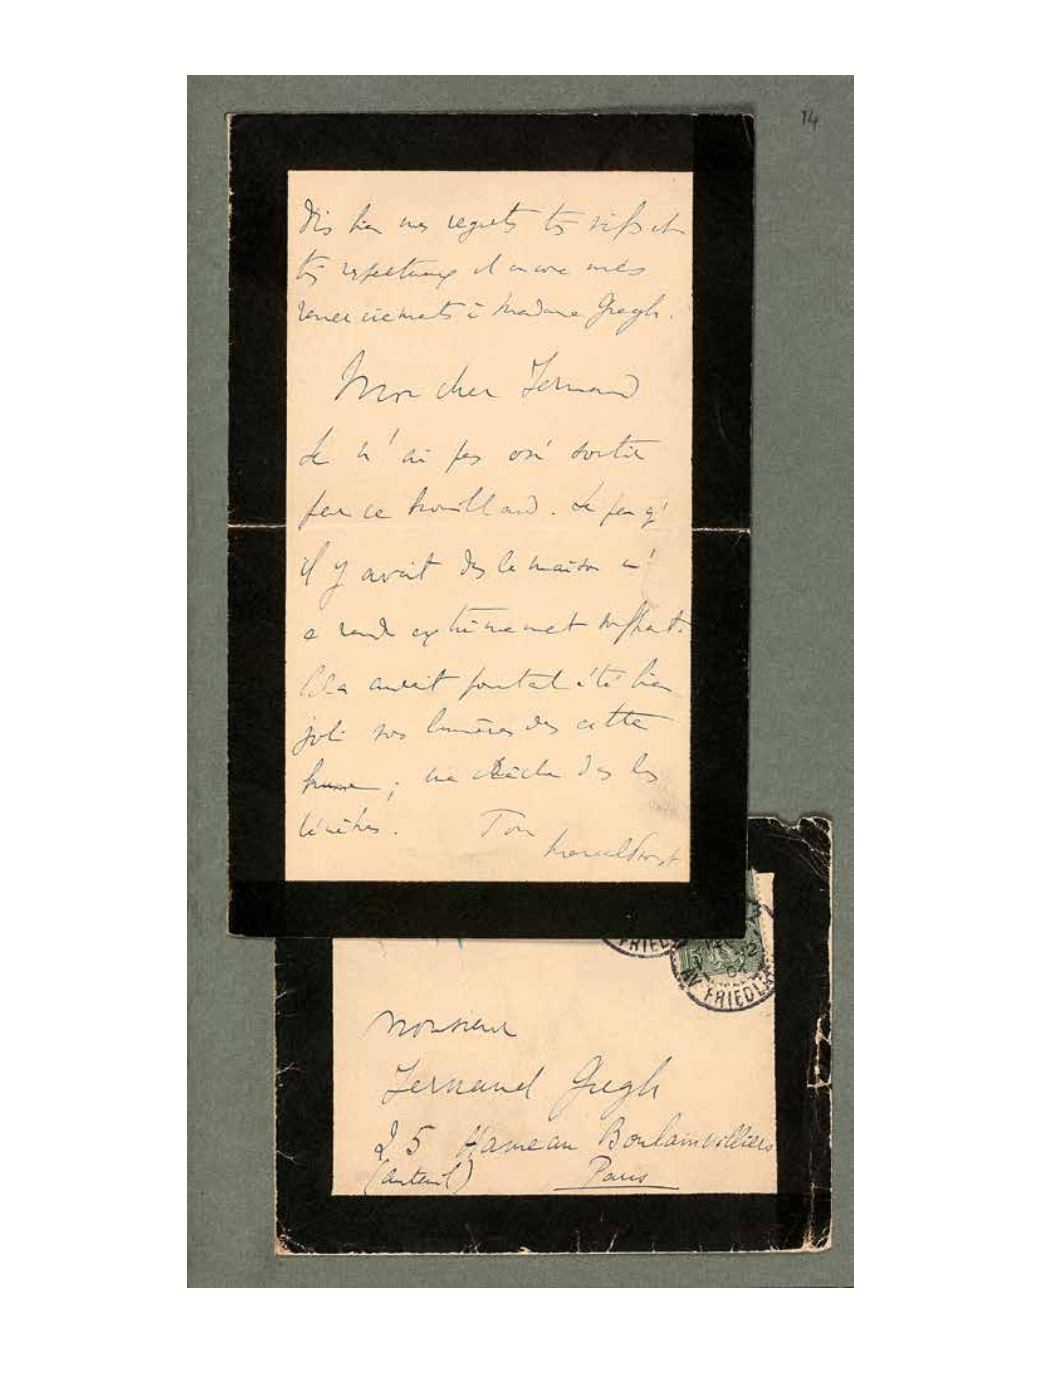 14
Dis bien mes regrets très vifs et
très respectueux et encore mes
remerciements à Madame Gregh.
Mon cher Fernand
Je n'ai pas osé sortir
par ce brouillard. Le peu q'
il y avait ds la maison m'
a rendu extrêmement souffrant.
Cela aurait pourtant été bien
joli vos lumières ds cette
brume ; ds les
ténèbres.
Ton
Marcel Proust
FRIEDL
AV FRIEDLA
15
Monsieur
Fernand Gregh
25 Hameau Boulainvilliers
(Auteuil) Paris